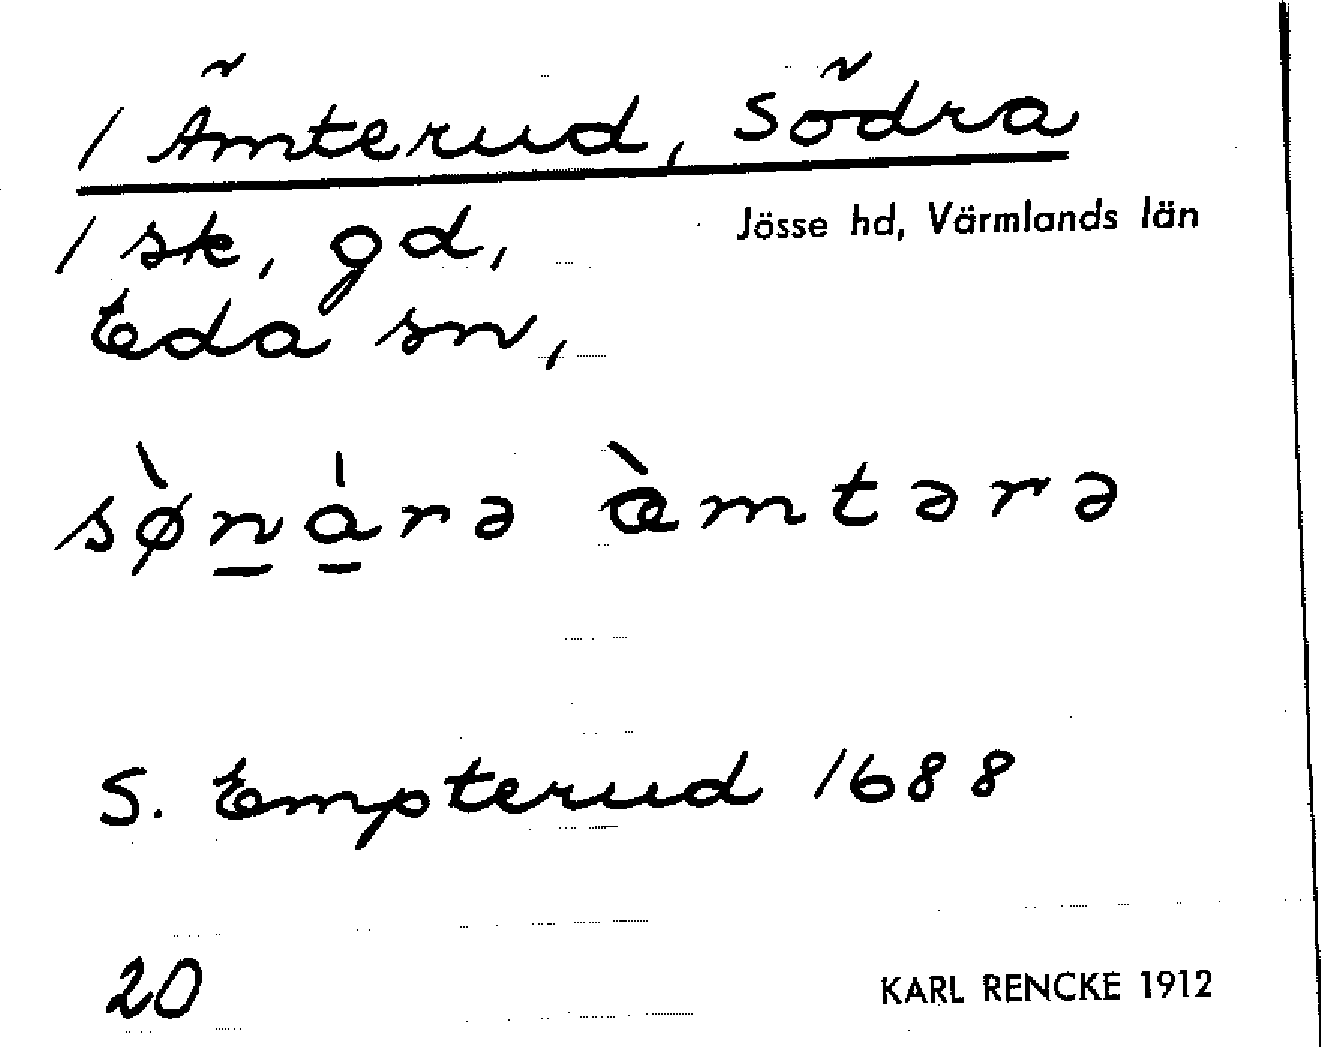 / Ämterud, Södra
/ sk, gd,
Jösse hd, Värmlands län
Eda sn,
sø̀n̲a̲̍rə æ̀mtərə
S. Empterud 1688
20
KARL RENCKE 1912